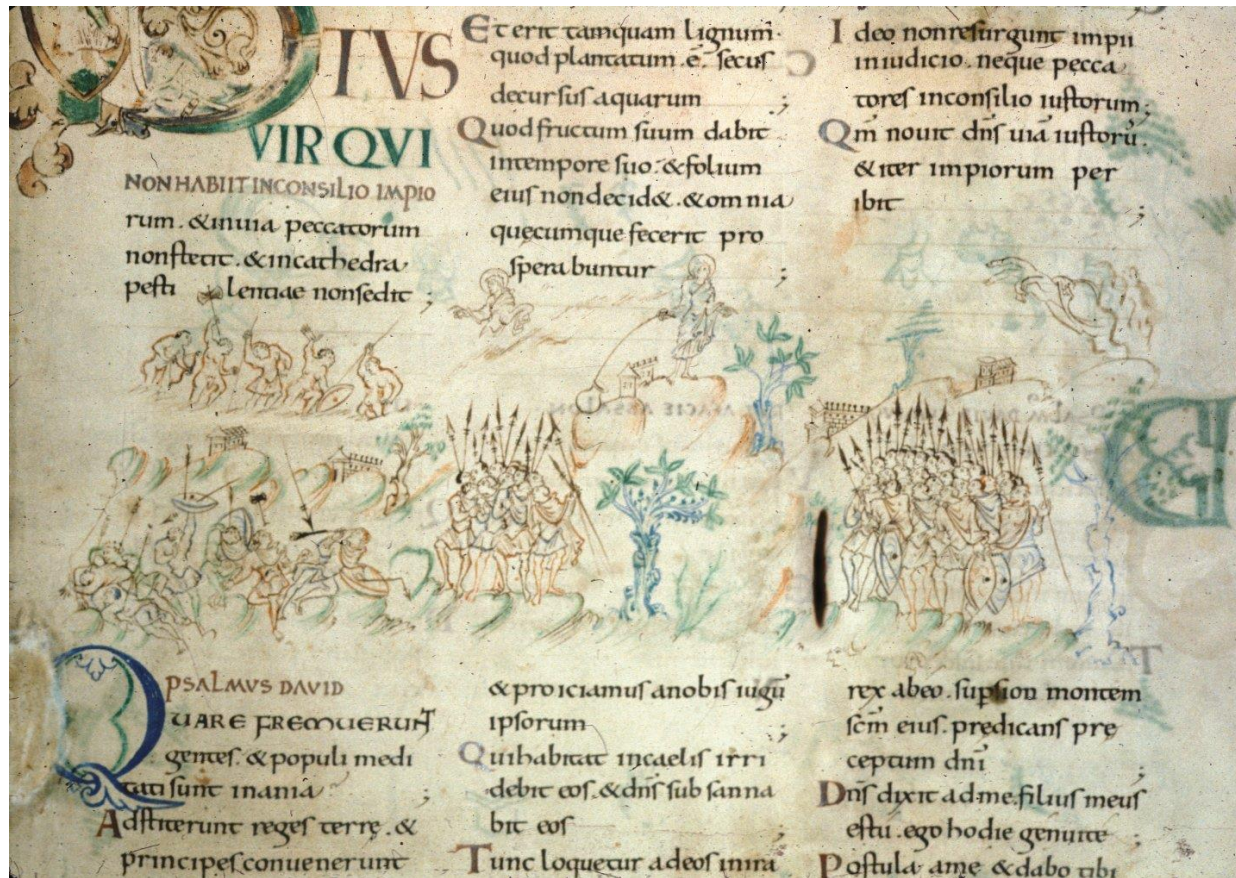 TVS
VIR QVI
NON HABIIT IN CONSILIO IMPIO
rum. & inuia peccatorum
non stetit. & in cathedra
pesti lentiae non sedit ;
Et erit tamquam lignum.
quod plantatum .ē. secus
decursus aquarum ;
Quod fructum suum dabit
in tempore suo. & folium
eius non decid&. & omnia
quęcumque fecerit pro
spera buntur ;
Ideo non resurgunt impii
in iudicio. neque pecca
tores in consilio iustorum ;
Qm̄ nouit dn̄s uiā iustorū.
& iter impiorum per
ibit ;
PSALMVS DAVID
QUARE FREMUERUNT
gentes. & populi medi
tati sunt inania ;
Adstiterunt reges terrę. &
principes conuenerunt
& proiciamus a nobis iugū
ipsorum ;
Qui habitat in caelis irri
debit eos. & dn̄s sub sanna
bit eos ;
Tunc loquetur ad eos in ira
rex ab eo. sup sion montem
scm̄ eius. predicans prę
ceptum dn̄i ;
Dn̄s dixit ad me. filius meus
es tu. ego hodie genui te ;
Postula a me & dabo tibi